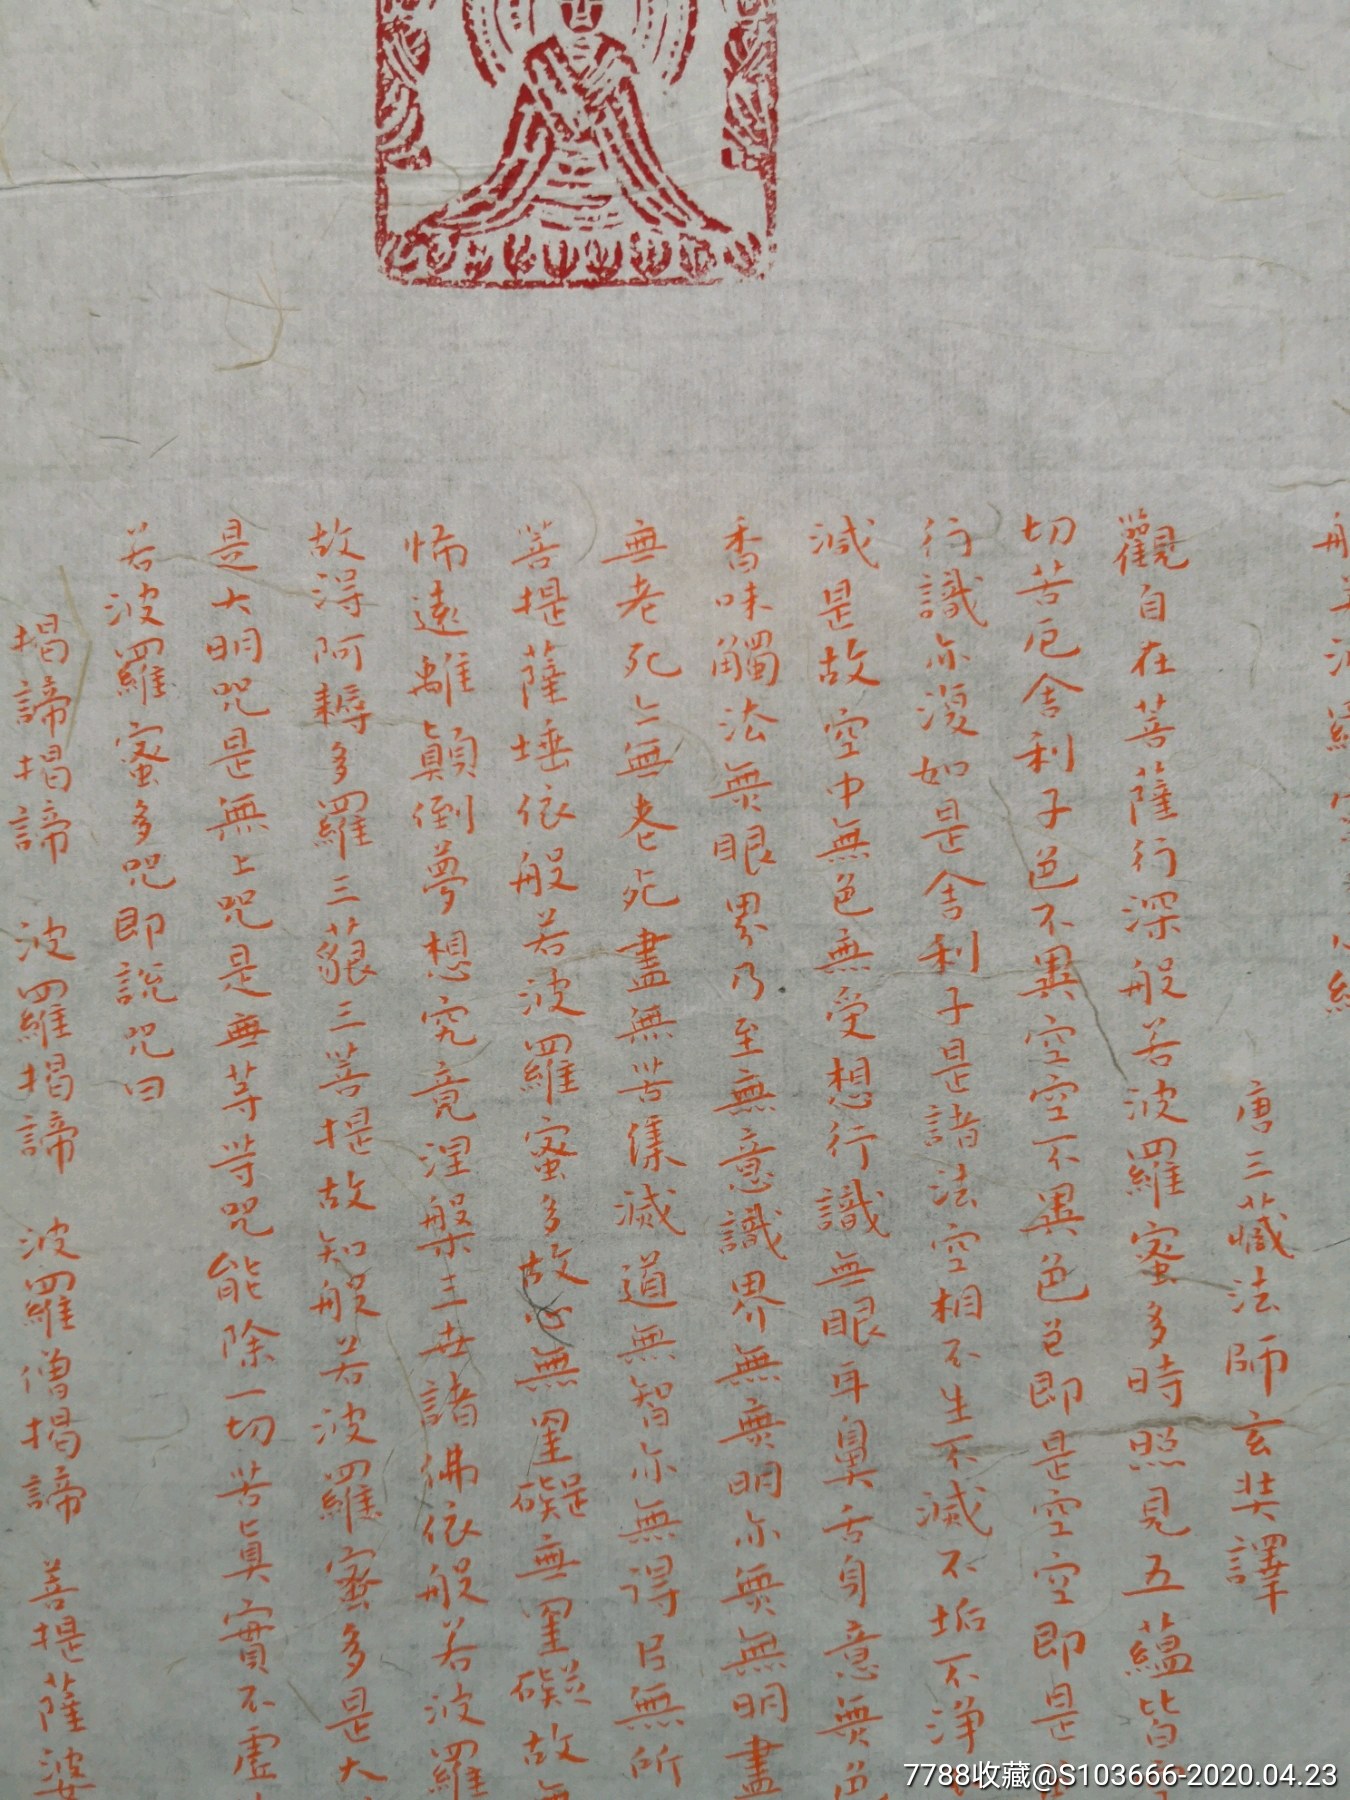 般若波羅蜜多心經
唐三藏法師玄奘譯
觀自在菩薩行深般若波羅蜜多時照見五蘊皆
切苦厄舍利子色不異空空不異色色即是空空即是
行識亦復如是舍利子是諸法空相不生不滅不垢不淨
減是故空中無色無受想行識無眼耳鼻舌身意無色
香味觸法無眼界乃至無意識界無無明亦無無明盡
無老死亦無老死盡無苦集滅道無智亦無得以無所
菩提薩埵依般若波羅蜜多故心無罣礙無罣礙故無
怖遠離顛倒夢想究竟涅槃三世諸佛依般若波羅
故得阿耨多羅三藐三菩提故知般若波羅蜜多是大
是大明咒是無上咒是無等等咒能除一切苦真實不虛
若波羅蜜多咒即說咒曰
揭諦揭諦 波羅揭諦 波羅僧揭諦 菩提薩婆
7788收藏@S103666-2020.04.23